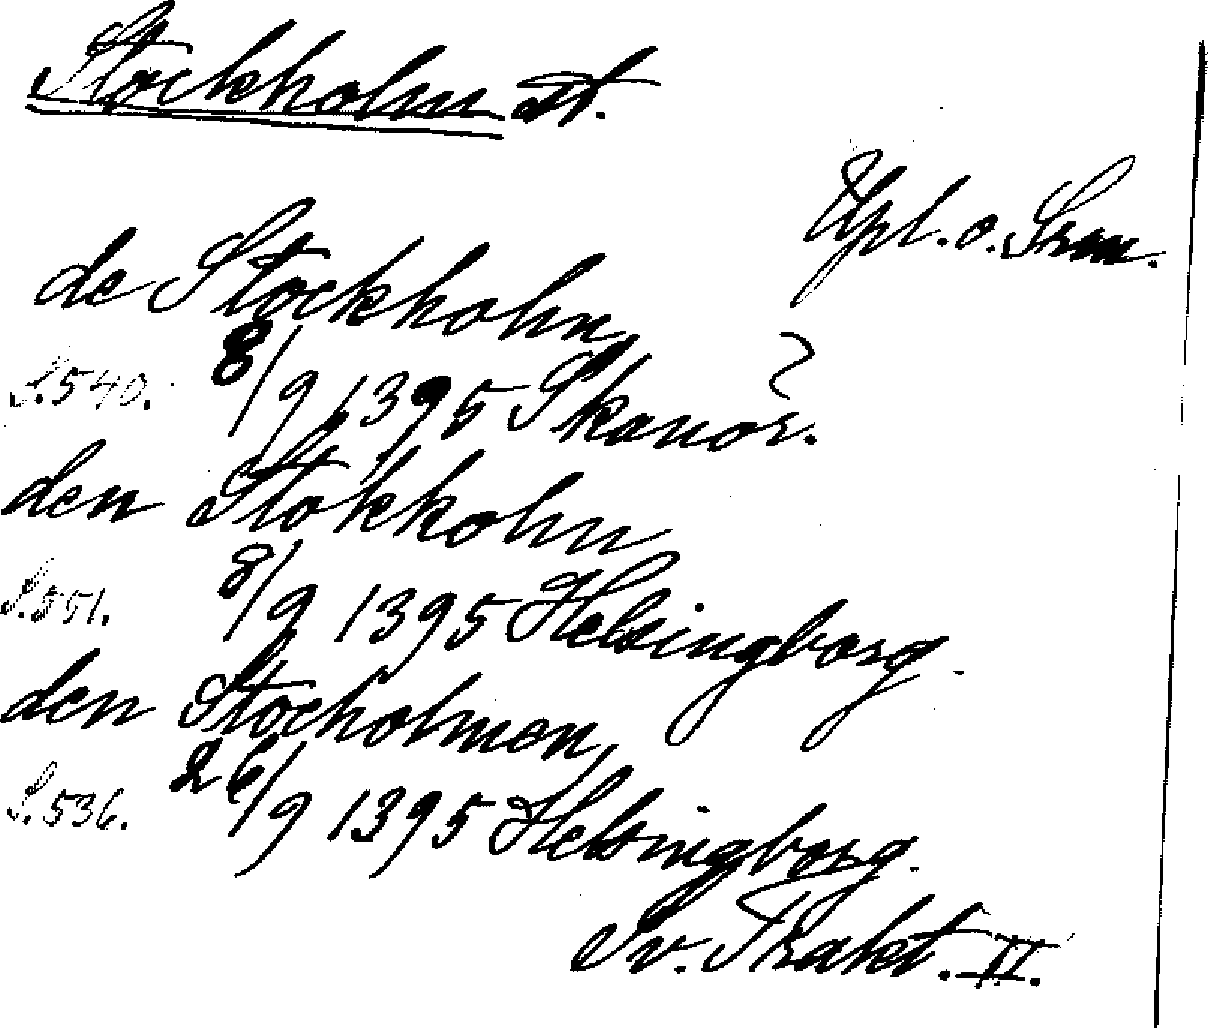 Stockholm st.
Upl. o. Srm.
de Stockholm
S. 540. 8/9 1395 Skanör.
den Stokkolm
S. 551. 8/9 1395 Helsingborg.
den Stocholmen
S. 536. 26/9 1395 Helsingborg.
Sv. Trakt. II.